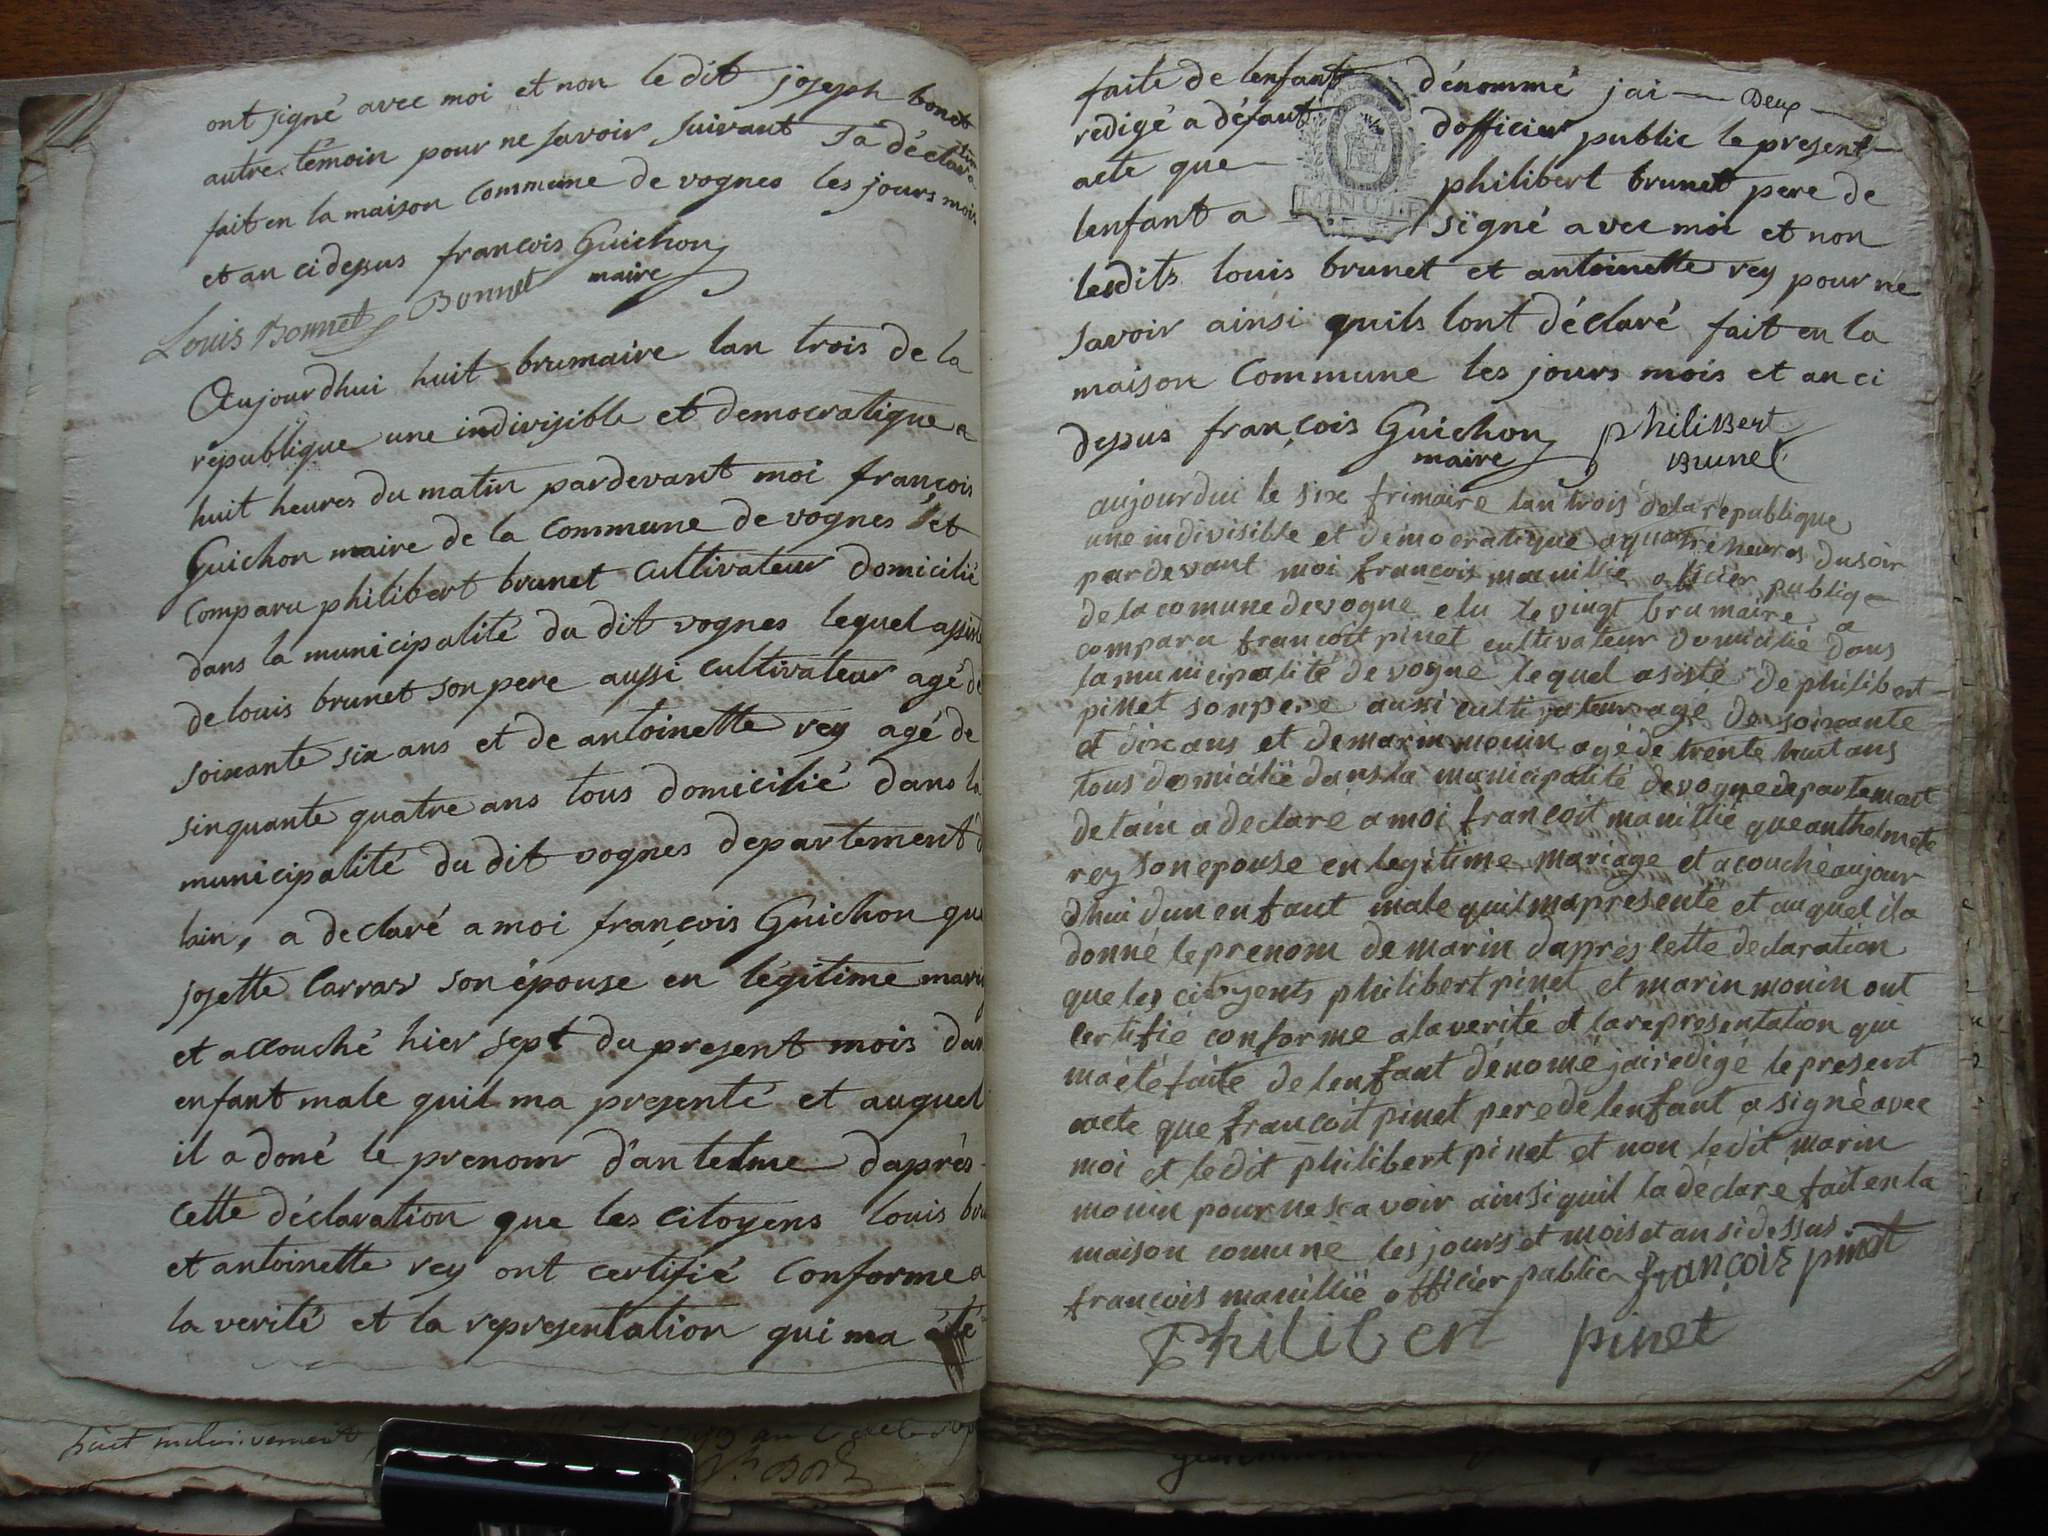 ont signé avec moi et non le dit joseph bonet
autre témoin pour ne savoir suivant sa déclaration
fait en la maison commune de vognes les jours mois
et an ci depus françois Guichon
maire
Louis Bonnet Bonnet
Aujourdhui huit brumaire lan trois de la
republique une indivisible et democratique a
huit heures du matin pardevant moi françois
Guichon maire de la commune de vognes set
comparu philibert brunet cultivateur domicilié
dans la municipalité du dit vognes lequel assisté
de louis brunet son pere aussi cultivateur agé de
soixante six ans et de antoinette rey agé de
sinquante quatre ans tous domicilié dans la
municipalité du dit vognes departement d
lain, a declaré a moi françois Guichon que
josette Carrar son épouse en légitime mariag
et accouché hier sept du present mois dun
enfant male quil ma presenté et auquel
il a doné le prenom dantelme daprés
cette déclaration que les citoyens louis bru
et antoinette rey ont certifié conforme a
la verité et la representation qui ma été
huit
faite de lenfant dénommé jai Deux
redigé a défaut dofficier public le present
acte que philibert brunet pere de
MINUTE
lenfant a signé avec moi et non
lesdits louis brunet et antoinette rey pour ne
savoir ainsi quils lont déclaré fait en la
maison commune les jours mois et an ci
depus françois Guichon philibert
maire Brunet
aujourdui le six frimaire lan trois de la republique
une indivisible et démocratique a quatre heures du soir
pardevant moi françois mauillié officier publique
de la comune de vogne elu le vingt brumaire a
comparu francoit pinet cultivateur domicilié dans
la municipalité de vogne lequel asisté de philibert
pinet son pere aussi cultivateur agé de soixante
et dix ans et de marin monin agé de trente huit ans
tous domicilié dans la municipalité de vogne departement
de lain a declare a moi françoit mauillié que anthelmete
rey son epouse en legitime mariage et acouché aujour
dhui dun enfant male quil ma presenté et auquel il a
donné le prenom de marin daprés cette declaration
que les citoyents philibert pinet et marin monin ont
certifié conforme a la verité et la representation qui
ma été faite de lenfant dénomé jai redigé le present
acte que françoit pinet pere de lenfant a signé avec
moi et le dit philibert pinet et non le dit marin
monin pour ne savoir ainsi quil la déclaré fait en la
maison comune les jours et mois et an si dessus
francois mauillié officier public françois pinet
Philibert pinet